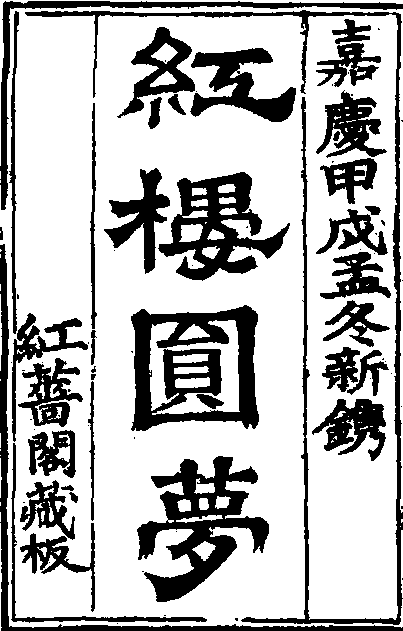 嘉慶甲戌孟冬新鐫
紅樓圓夢
紅薔閣藏板